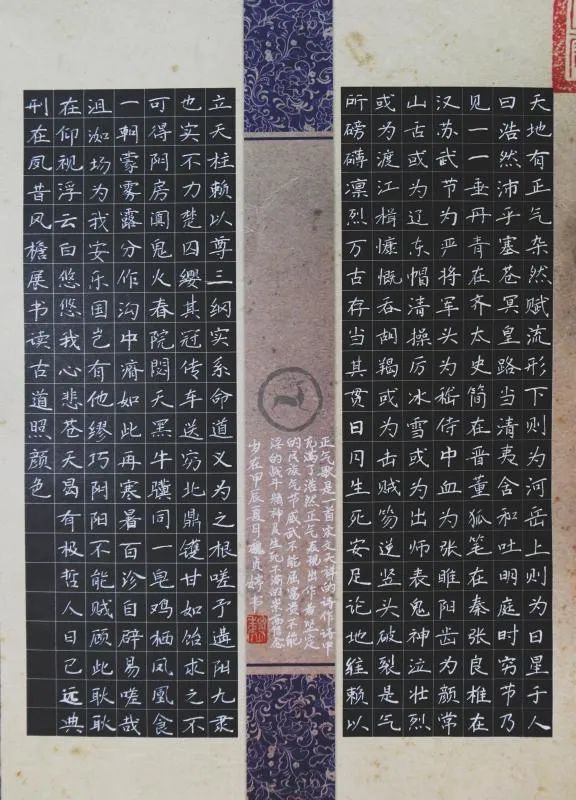 天地有正气杂然赋流形下则为河岳上则为日星于人
曰浩然沛乎塞苍冥皇路当清夷含和吐明庭时穷节乃
见一一垂丹青在齐太史简在晋董狐笔在秦张良椎在
汉苏武节为严将军头为嵇侍中血为张睢阳齿为颜常
山舌或为辽东帽清操厉冰雪或为出师表鬼神泣壮烈
或为渡江楫慷慨吞胡羯或为击贼笏逆竖头破裂是气
所磅礴凛烈万古存当其贯日月生死安足论地维赖以
正气歌是一首宋文天祥的诗作诗中
充满了浩然正气表现出作者坚定
的民族气节威武不能屈富贵不能
淫的战斗精神及生死不渝的崇高信念
岁在甲辰夏日魏贞婷书
立天柱赖以尊三纲实系命道义为之根嗟予遘阳九隶
也实不力楚囚缨其冠传车送穷北鼎镬甘如饴求之不
可得阴房阒鬼火春院閟天黑牛骥同一皂鸡栖凤凰食
一朝蒙雾露分作沟中瘠如此再寒暑百沴自辟易嗟哉
沮洳场为我安乐国岂有他缪巧阴阳不能贼顾此耿耿
在仰视浮云白悠悠我心悲苍天曷有极哲人日已远典
刑在夙昔风檐展书读古道照颜色